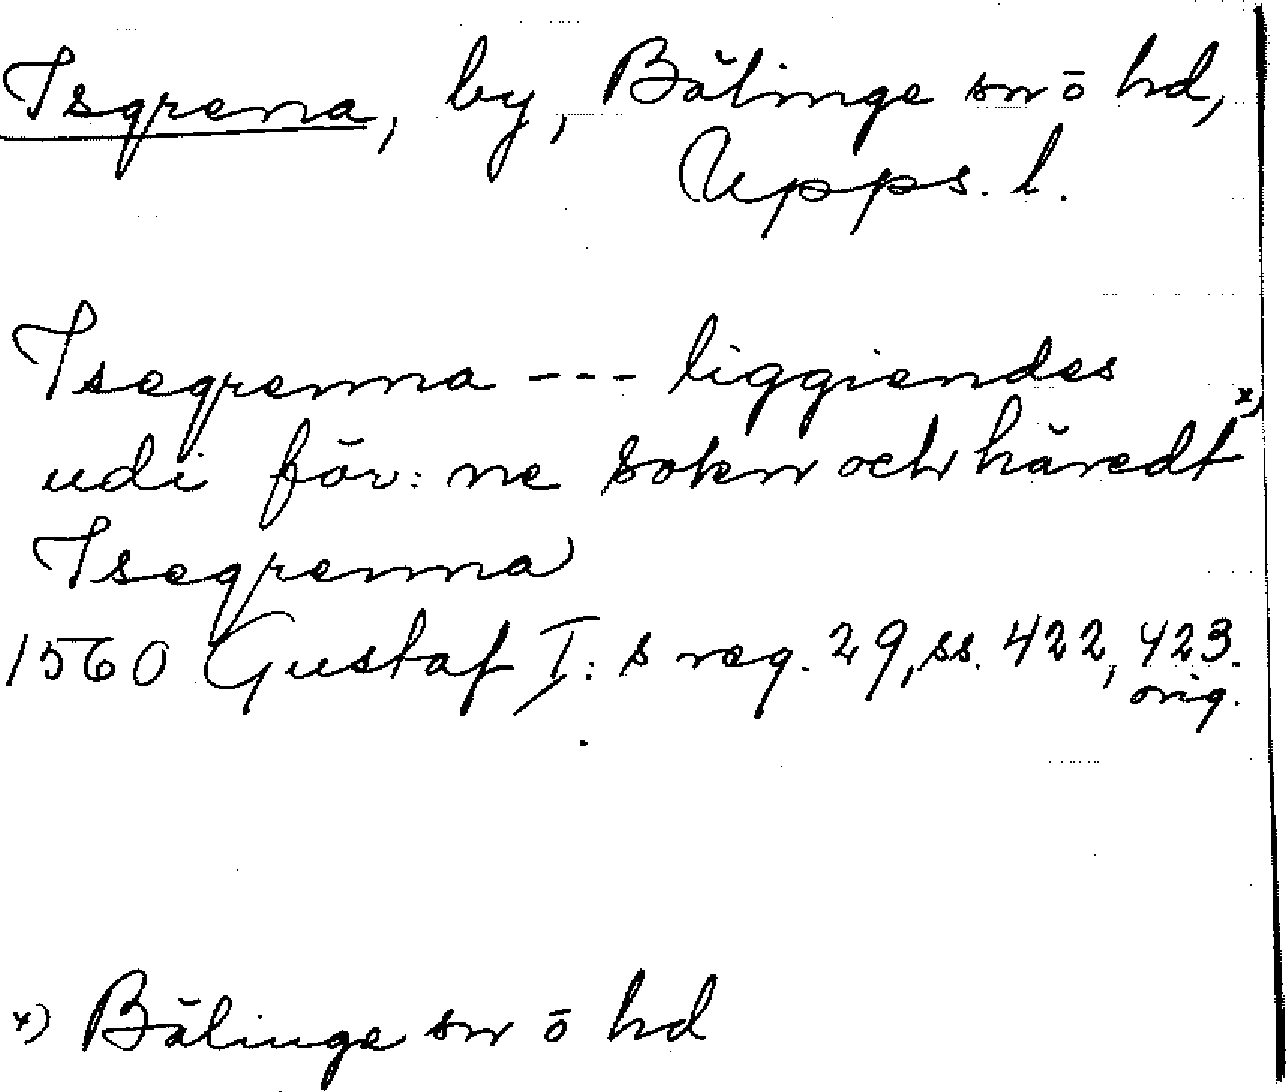 Isgrena, by, Bälinge sn o hd,
Upps. l.
Isegrenna --- liggiendes
udi för: ne sokn och häredt x)
Isegrenna
1560 Gustaf I: s reg. 29, ss. 422, 423.
orig.
x) Bälinge sn o hd